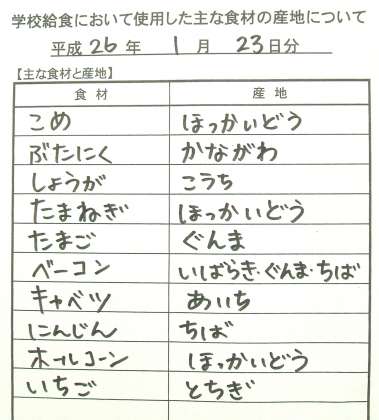 学校給食において使用した主な食材の産地について
平成 26 年 1 月 23 日分
【主な食材と産地】
食材 産地
こめ ほっかいどう
ぶたにく かながわ
しょうが こうち
たまねぎ ほっかいどう
たまご ぐんま
ベーコン いばらき・ぐんま・ちば
キャベツ あいち
にんじん ちば
ホールコーン ほっかいどう
いちご とちぎ